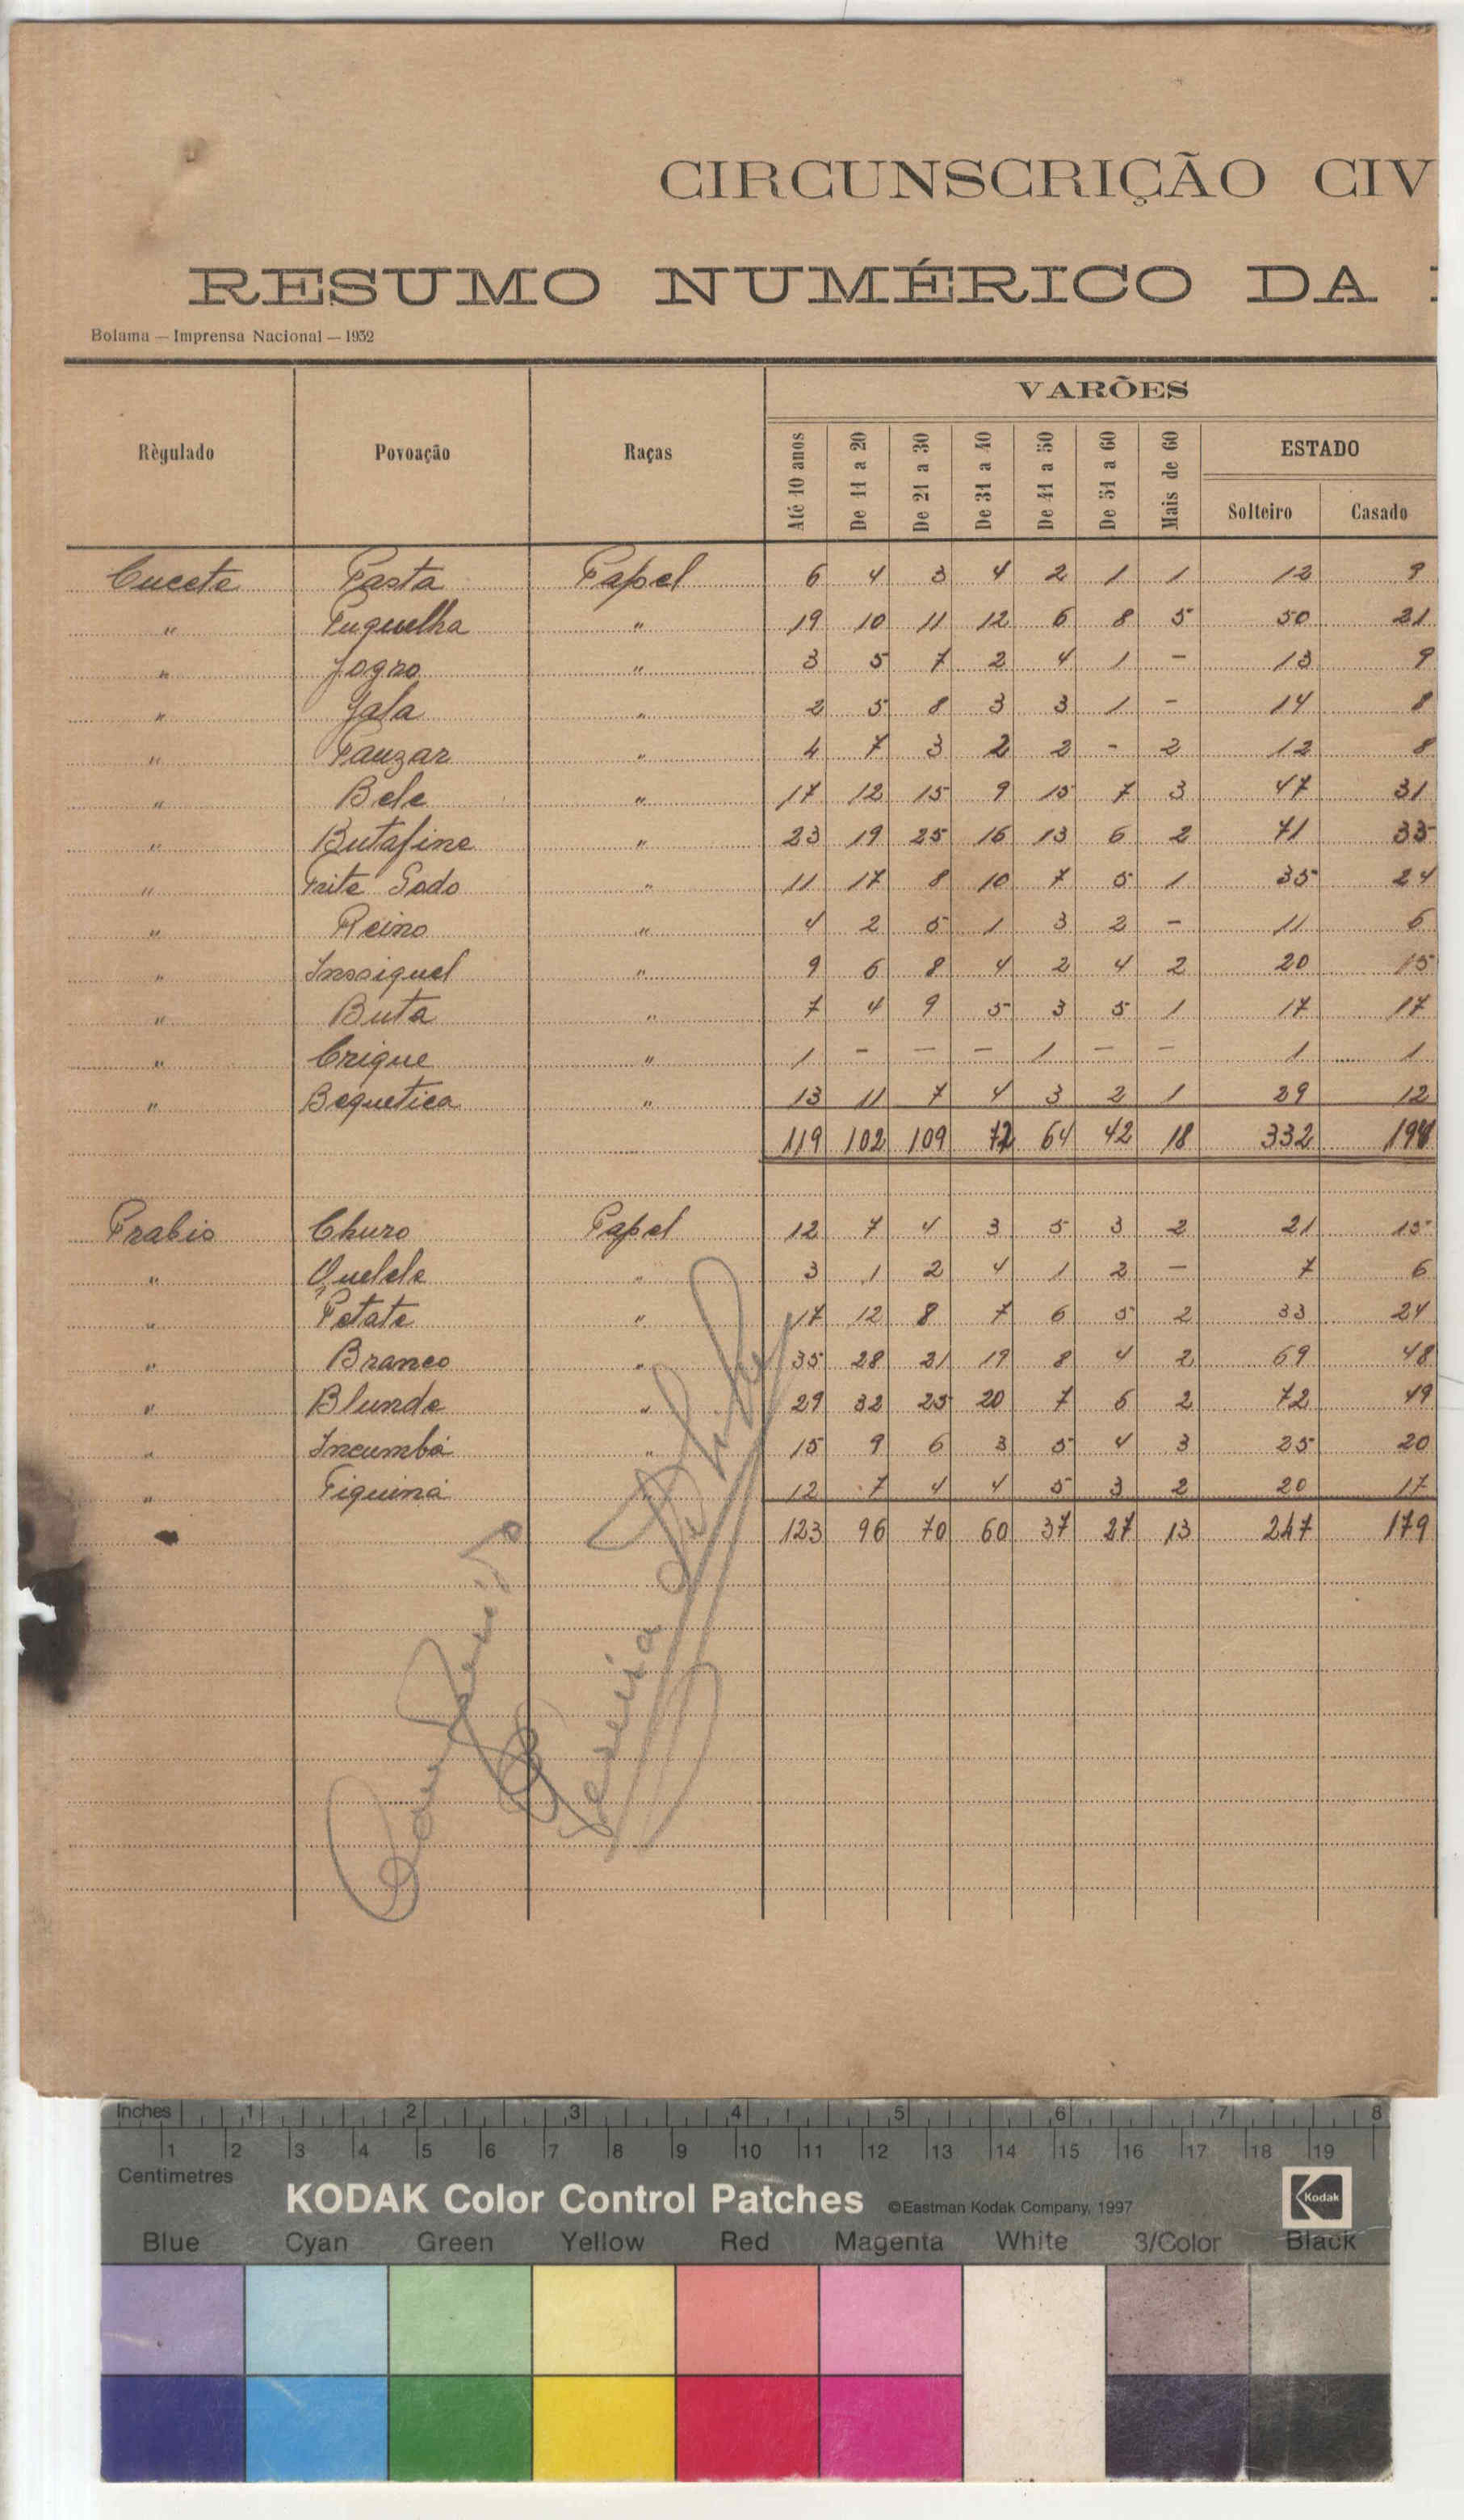 CIRCUNSCRIÇÃO CIV
RESUMO NUMÉRICO DA
Bolama — Imprensa Nacional — 1932
VARÕES
Règulado Povoação Raças Até 10 anos De 11 a 20 De 21 a 30 De 31 a 40 De 41 a 50 De 51 a 60 Mais de 60 ESTADO
Solteiro Casado
Cucete Pasta Papel 6 4 3 4 2 1 1 12 9
" Puguelha " 19 10 11 12 6 8 5 50 21
" Jogro " 3 5 7 2 4 1 - 13 9
" Jala " 2 5 8 3 3 1 - 14 8
" Pauzar " 4 7 3 2 2 - 2 12 8
" Bele " 17 12 15 9 15 7 3 47 31
" Butafine " 23 19 25 16 13 6 2 71 33
" " 11 17 8 10 7 5 1 35 24
" Reino " 4 2 5 1 3 2 - 11 6
" Insoiquel " 9 6 8 4 2 4 2 20 15
" Buta " 7 4 9 5 3 5 1 17 17
" Crique " 1 - - - 1 - - 1 1
" Bequetica " 13 11 7 4 3 2 1 29 12
119 102 109 72 64 42 18 332 194
Prabis Churo Papel 12 7 4 3 5 3 2 21 15
" Quelele " 3 1 2 4 1 2 - 7 6
" Petate " 17 12 8 7 6 5 2 33 24
" Branco " 35 28 21 19 8 4 2 69 48
" Blunde " 29 32 25 20 7 6 2 72 49
" Incumbá " 15 9 6 3 5 4 3 25 20
" Tiquiná " 12 7 4 4 5 3 2 20 17
123 96 70 60 37 27 13 247 179
Inches 1 2 3 4 5 6 7 8
1 2 3 4 5 6 7 8 9 10 11 12 13 14 15 16 17 18 19
Centimetres
KODAK Color Control Patches ©Eastman Kodak Company, 1997 Kodak
Blue Cyan Green Yellow Red Magenta White 3/Color Black